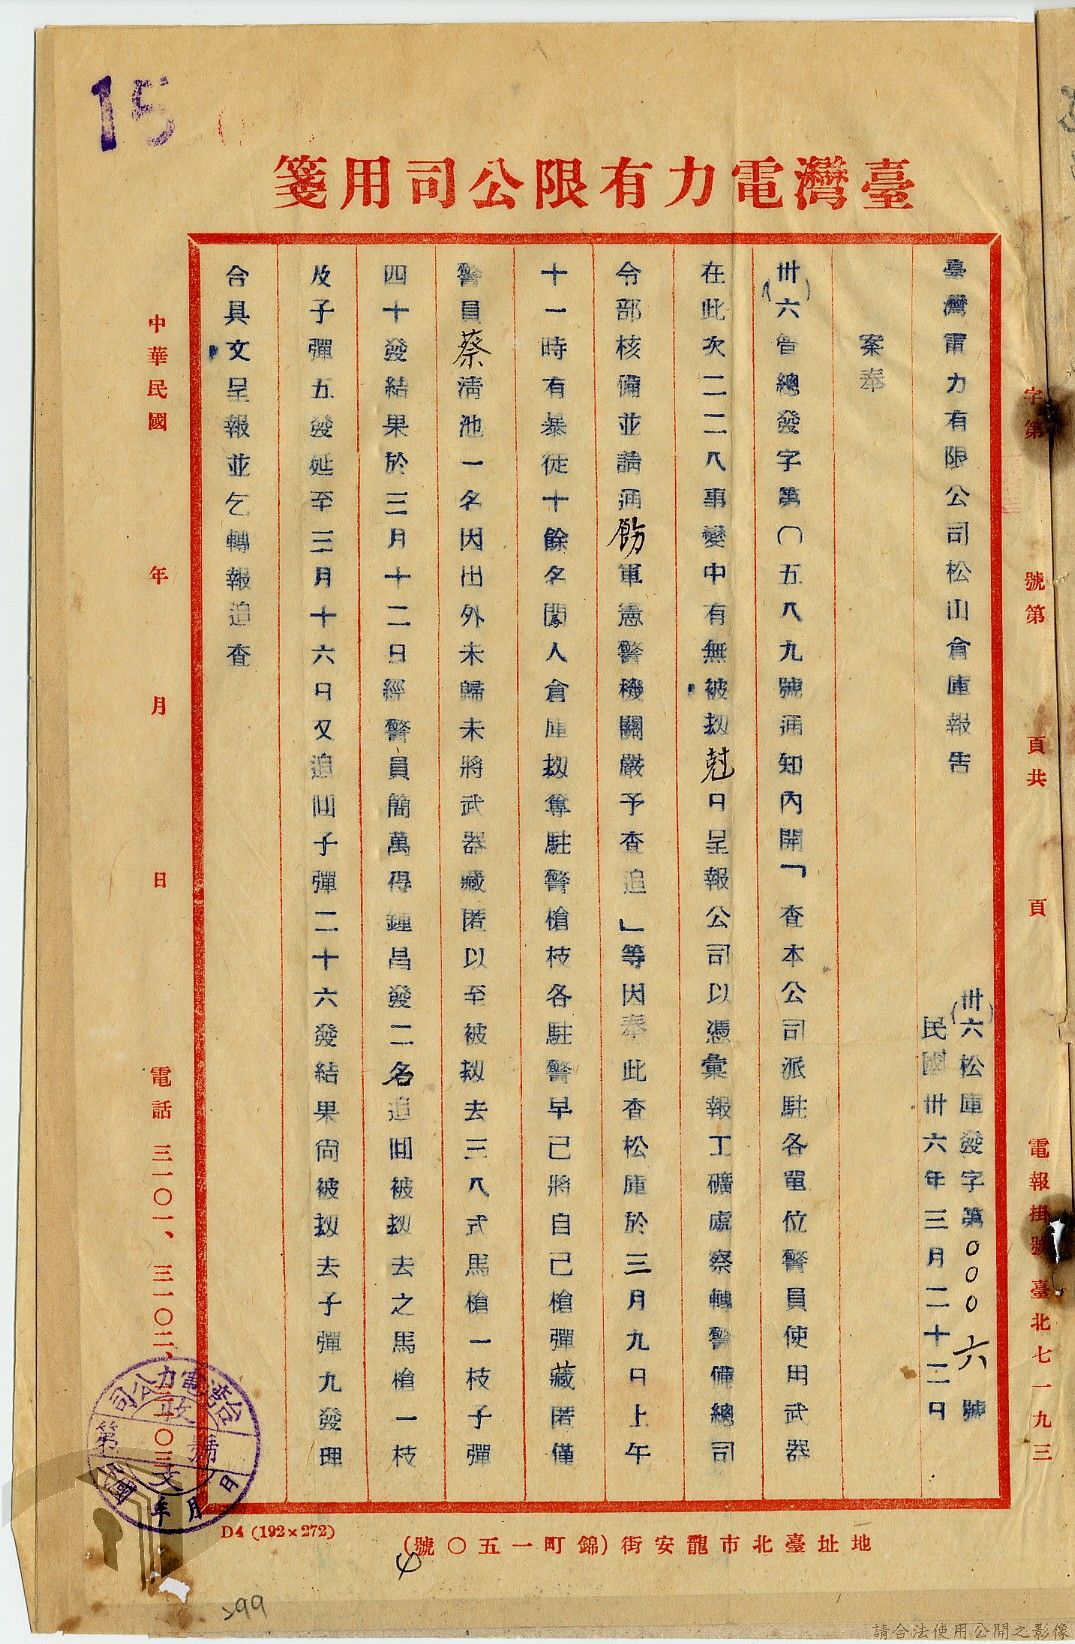 15
臺灣電力有限公司用箋
字第　　號第　　頁共　　頁　　電報掛號臺北七一九三
臺灣電力有限公司松山倉庫報告
(卅六)松庫發字第000六號
民國卅六年三月二十二日
案奉
(卅六)智總發字第〇五八九號通知內開「查本公司派駐各單位警員使用武器
在此次二二八事變中有無被刼尅日呈報公司以憑彙報工礦處察轉警備總司
令部核備並請通飭軍憲警機關嚴予查追」等因奉此查松庫於三月九日上午
十一時有暴徒十餘名闖人倉庫刼奪駐警槍枝各駐警早已將自己槍彈藏匿僅
警員蔡清池一名因出外未歸未將武器藏匿以至被刼去三八式馬槍一枝子彈
四十發結果於三月十二日經警員簡萬得鍾昌發二名追回被刼去之馬槍一枝
及子彈五發延至三月十六日又追回子彈二十六發結果尚被刼去子彈九發理
合具文呈報並乞轉報追查
中華民國　　年　　月　　日　　電話　三一〇一、三一〇二、三一〇三
台灣電力公司
收文
第　　號
年　月　日
D4 (192×272)
地址臺北市龍安街(錦町一五〇號)
299
請合法使用公開之影像